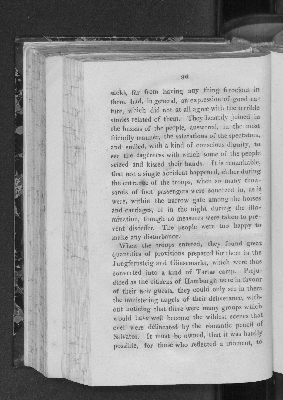 sacks, far from having any thing ferocious in
them, had, in general, an expression of good na-
ture, which did not at all agree with the terrible
stories related of them. They heartily joined in
the huzzas of the people, answered, in the most
friendly manner, the salutations of the spectators,
and smiled, with a kind of conscious dignity, to
see the eagerness with which some of the people
seized and kissed their hands. It is remarkable,
that not a single accident happened, either during
the entrance of the troops, when so many thou-
sands of foot passengers were squeezed in, as it
were, within the narrow gate among the horses
and carriages, or in the night during the illu-
mination, though no measures were taken to pre-
vent disorder. The people were too happy to
make any disturbance.
When the troops entered, they found great
quantities of provisions prepared for them in the
Jungfernsteig and Gänsemarkt, which were thus
converted into a kind of Tartar camp. Preju-
diced as the citizens of Hamburgh were in favour
of their new guests, they could only see in them
the ministering angels of their deliverance, with-
out noticing that there were many groups which
would have well become the wildest scenes that
ever were delineated by the romantic pencil of
Salvator. It must be owned, that it was hardly
possible, for those who reflected a moment, to